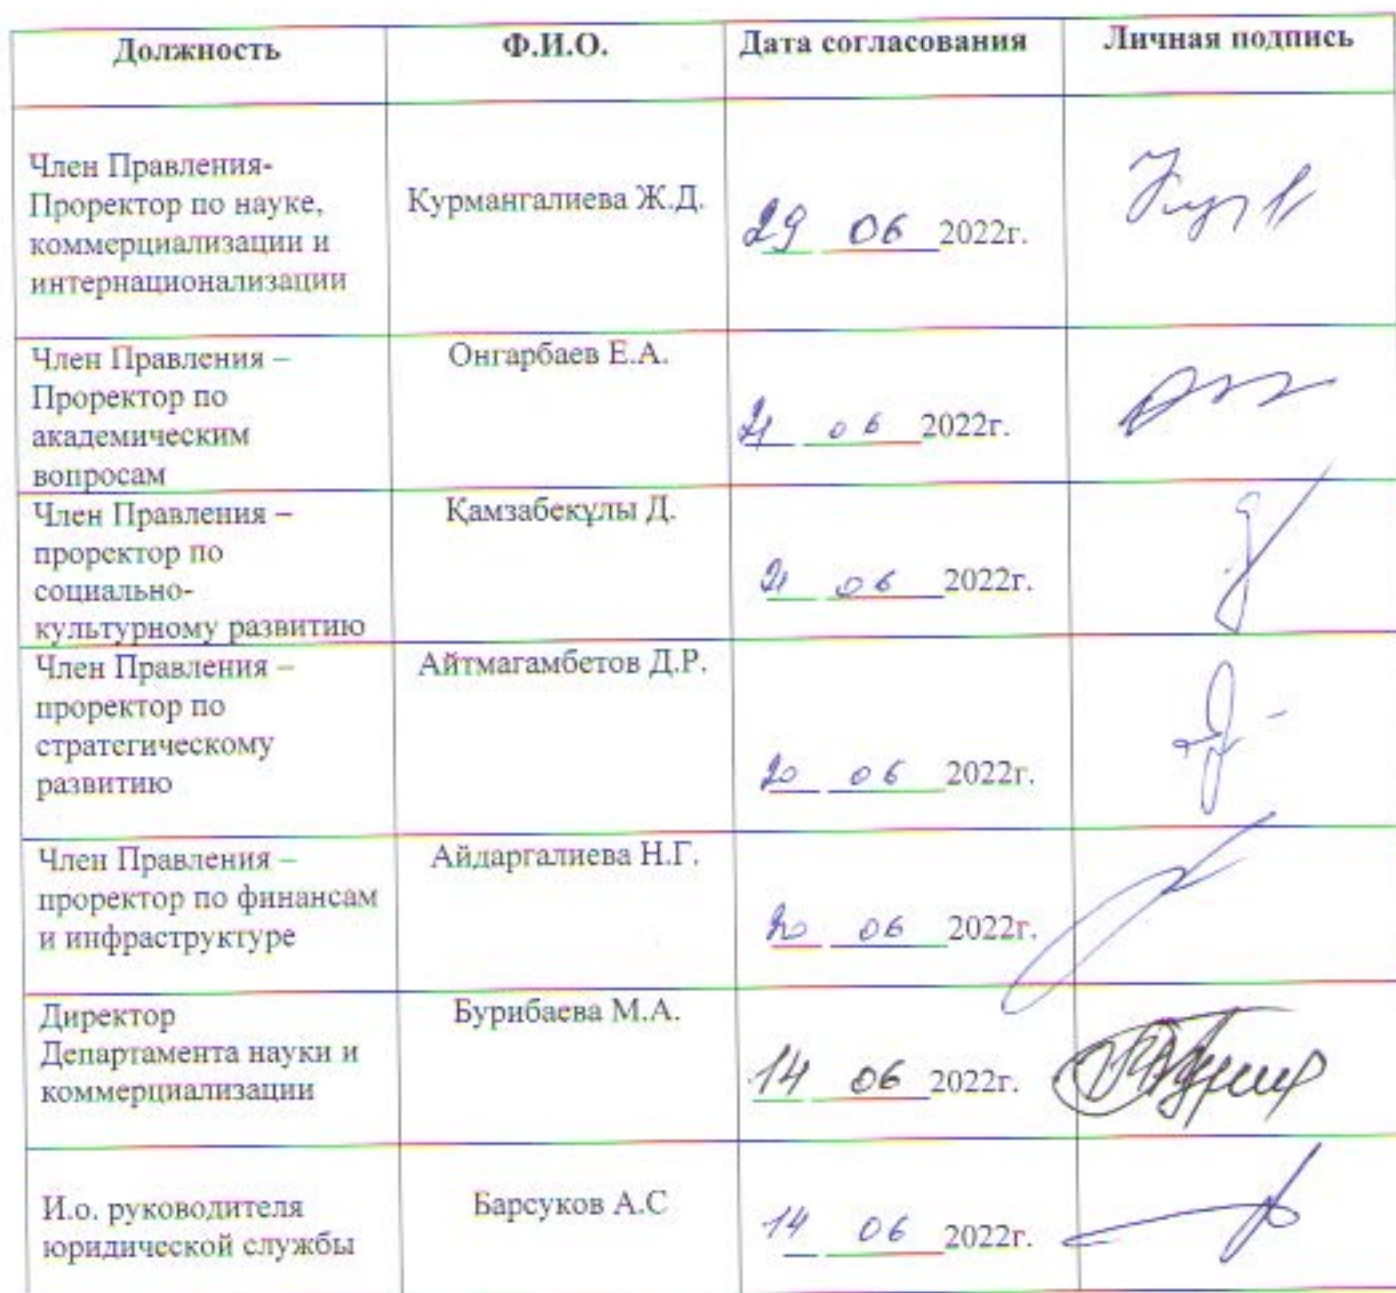 Должность Ф.И.О. Дата согласования Личная подпись
Член Правления-
Проректор по науке,
коммерциализации и
интернационализации
Курмангалиева Ж.Д.
29 06 2022г.
Член Правления –
Проректор по
академическим
вопросам
Онгарбаев Е.А.
21 06 2022г.
Член Правления –
проректор по
социально-
культурному развитию
Қамзабекұлы Д.
21 06 2022г.
Член Правления –
проректор по
стратегическому
развитию
Айтмагамбетов Д.Р.
20 06 2022г.
Член Правления –
проректор по финансам
и инфраструктуре
Айдаргалиева Н.Г.
20 06 2022г.
Директор
Департамента науки и
коммерциализации
Бурибаева М.А.
14 06 2022г.
И.о. руководителя
юридической службы
Барсуков А.С
14 06 2022г.